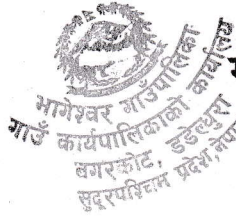 भागेश्वर गाउँपालिका
गाउँ कार्यपालिकाको कार्यालय
बगरकोट, डडेल्धुरा
सुदूरपश्चिम प्रदेश, नेपाल